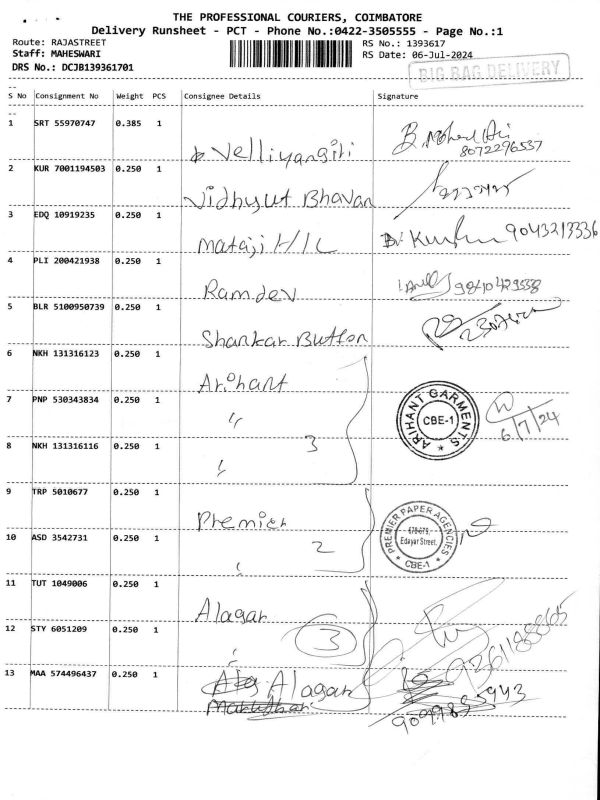 THE PROFESSIONAL COURIERS, COIMBATORE
Delivery Runsheet - PCT - Phone No.:0422-3505555 - Page No.:1
Route: RAJASTREET
RS No.: 1393617
Staff: MAHESWARI
RS Date: 06-Jul-2024
DRS No.: DCJB139361701
BIG BAG DELIVERY
S No Consignment No Weight PCS Consignee Details Signature
1 SRT 55970747 0.385 1
b. Velliyangiri
8072296537
2 KUR 7001194503 0.250 1
Vidhyut Bhavan
3 EDQ 10919235 0.250 1
Mataji H/L
9043213336
4 PLI 200421938 0.250 1
Ramdev
9840429558
5 BLR 5100950739 0.250 1
Shankar Button
6 NKH 131316123 0.250 1
Arihant
7 PNP 530343834 0.250 1
"
ARIHANT GARMENTS
CBE-1
6/7/24
8 NKH 131316116 0.250 1
"
3
9 TRP 5010677 0.250 1
Premier
PREMIER PAPER AGENCIES
Edayar Street.
CBE-1
10 ASD 3542731 0.250 1
2
"
11 TUT 1049006 0.250 1
Alagar
12 STY 6051209 0.250 1
3
"
13 MAA 574496437 0.250 1
Alagar